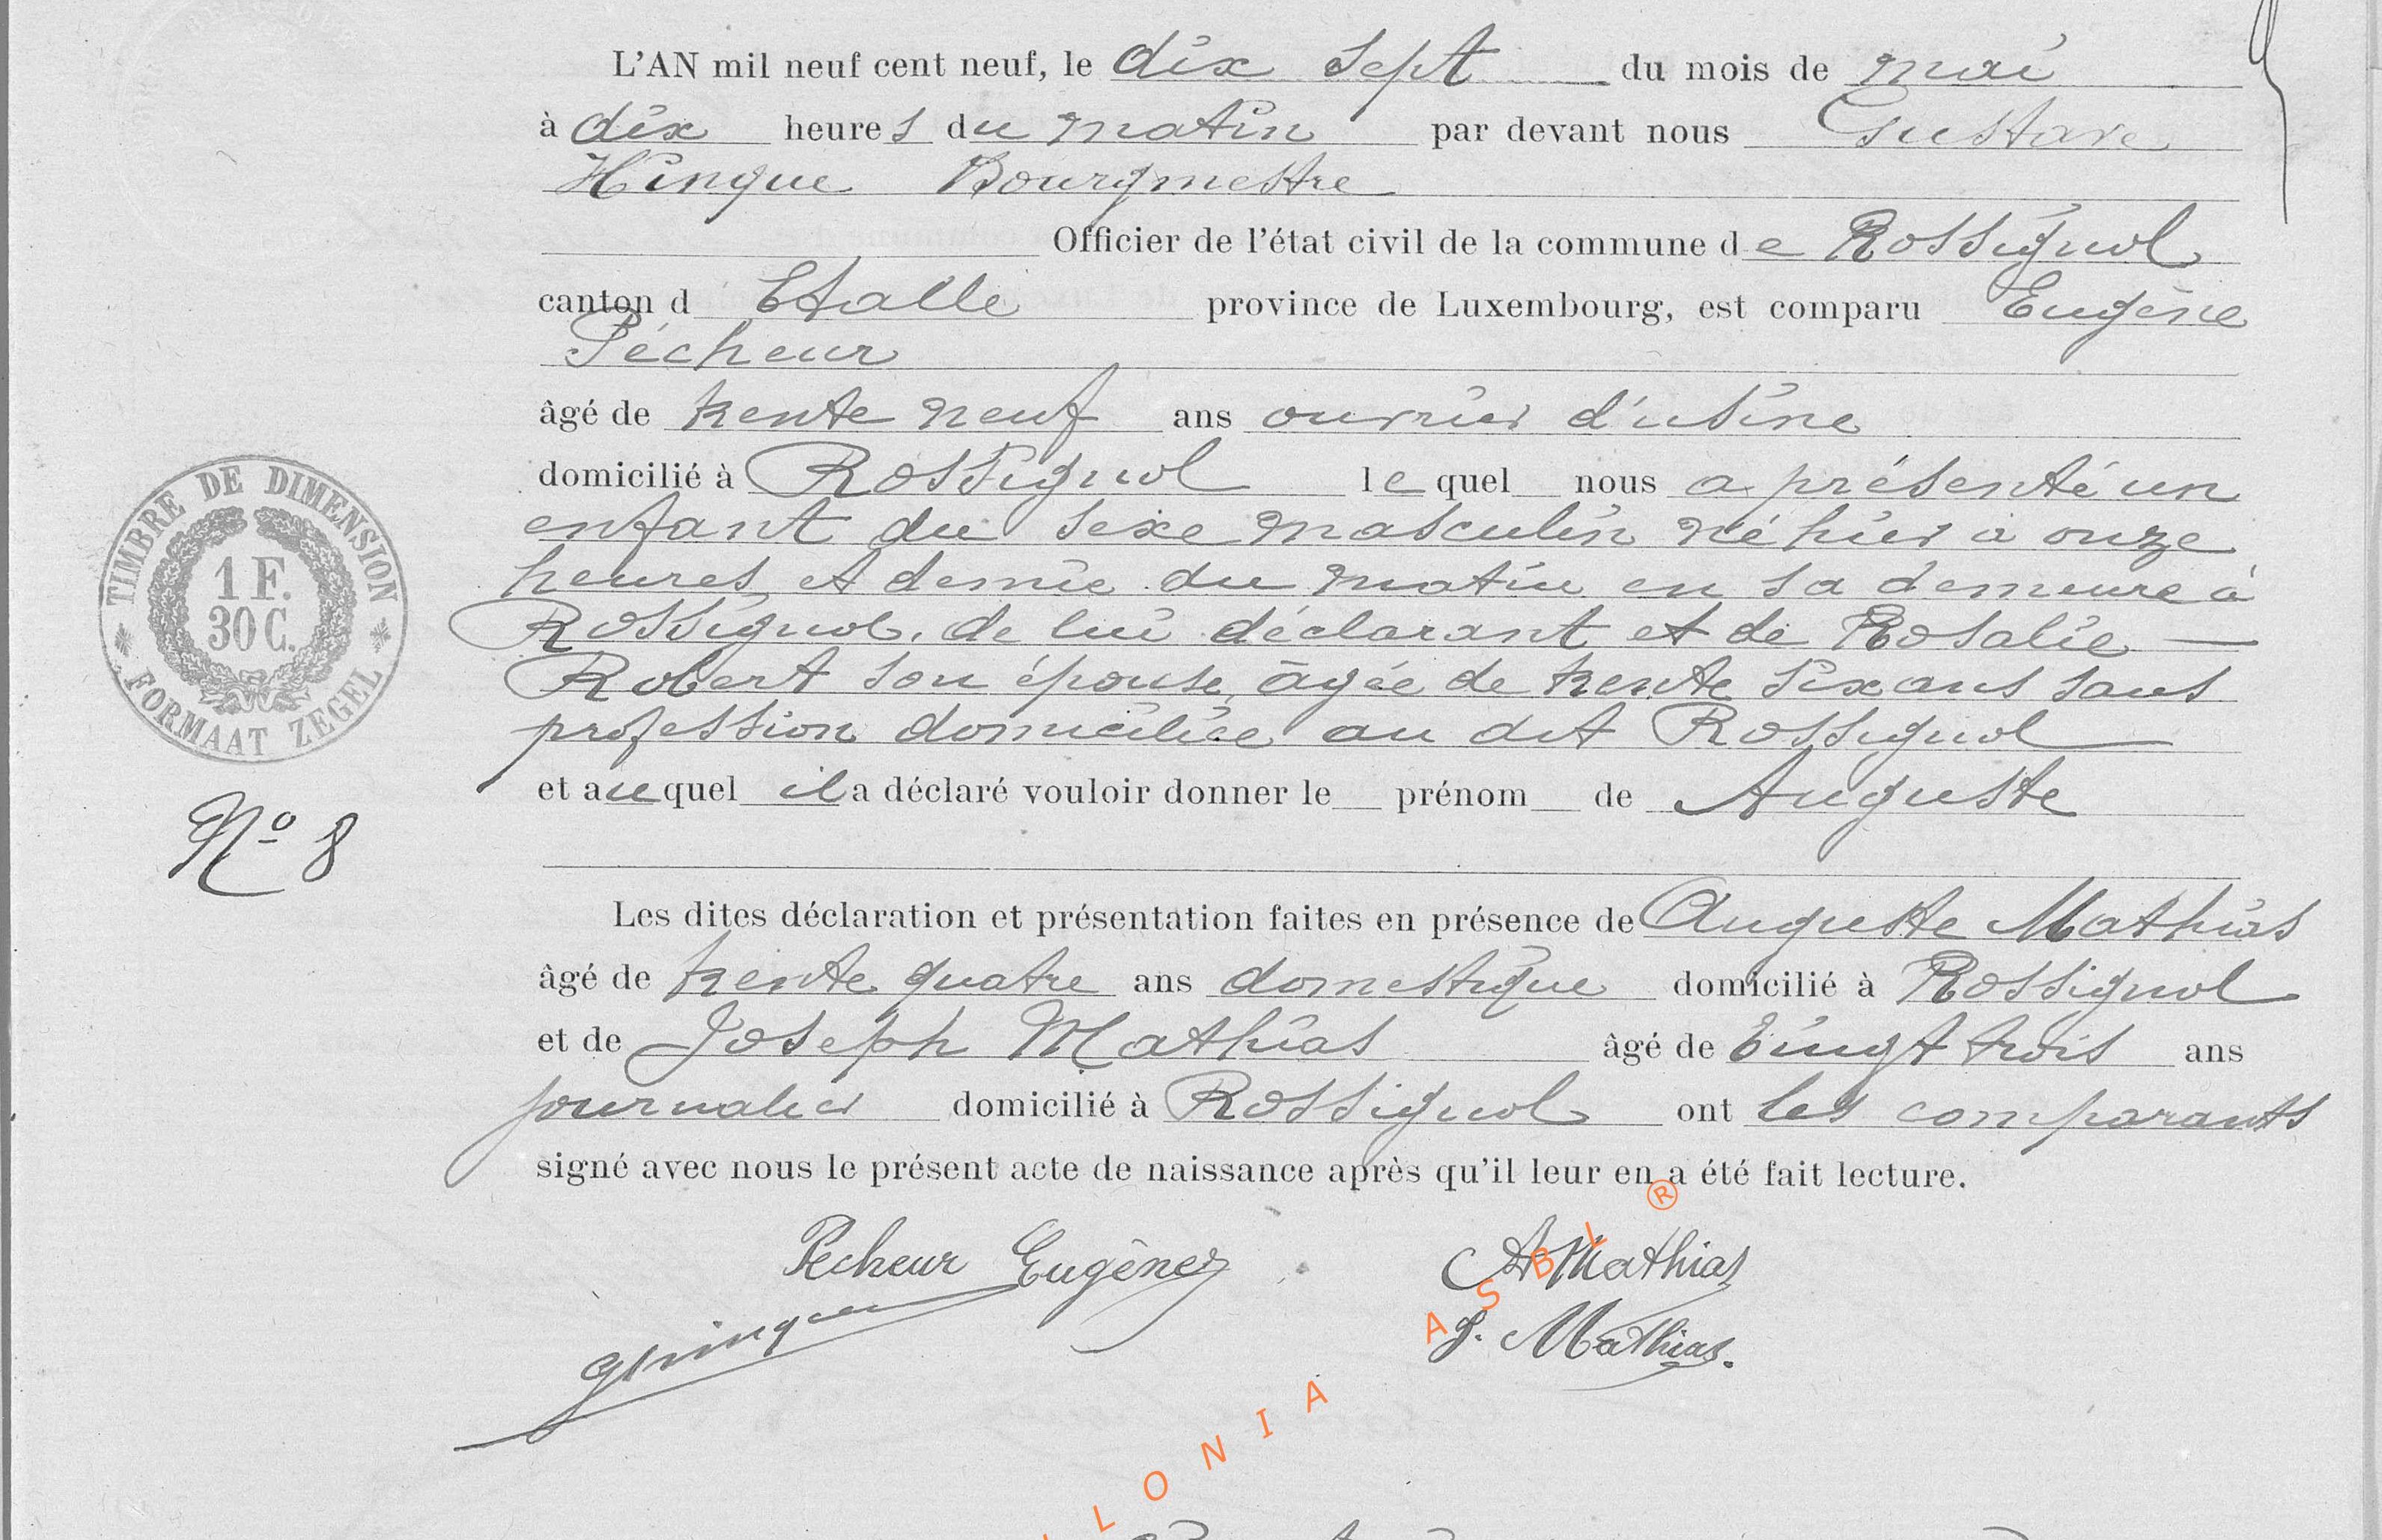 L'AN mil neuf cent neuf, le dix sept du mois de mai
à dix heures du matin par devant nous Gustave
Hinque Bourgmestre
Officier de l'état civil de la commune de Rossignol
canton d Etalle province de Luxembourg, est comparu Eugène
Pécheur
âgé de trente neuf ans ouvrier d'usine
domicilié à Rossignol lequel nous a présenté un
enfant du sexe masculin né hier à onze
heures et demie du matin en sa demeure à
Rossignol, de lui déclarant et de Rosalie
Robert son épouse, âgée de trente six ans sans
profession domiciliée au dit Rossignol
et auquel il a déclaré vouloir donner le prénom de Auguste
Les dites déclaration et présentation faites en présence de Auguste Mathias
âgé de trente quatre ans domestique domicilié à Rossignol
et de Joseph Mathias âgé de vingt trois ans
journalier domicilié à Rossignol ont les comparants
signé avec nous le présent acte de naissance après qu'il leur en a été fait lecture.
Pecheur Eugène
A Mathias
J. Mathias.
TIMBRE DE DIMENSION
1 F.
30 C.
FORMAAT ZEGEL
Nº 8
LONIA ASBL ®